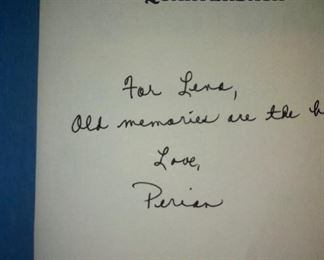 For Lena,
Old memories are the
Love,
Perian